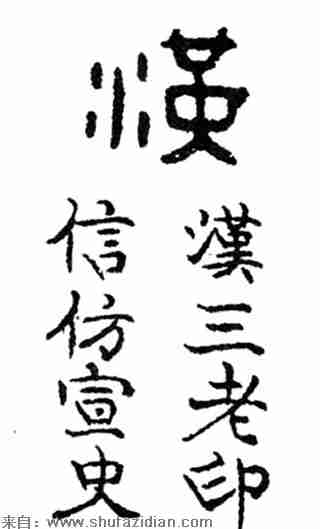 漢
漢三老印
信仿宣史
来自：www.shufazidian.com